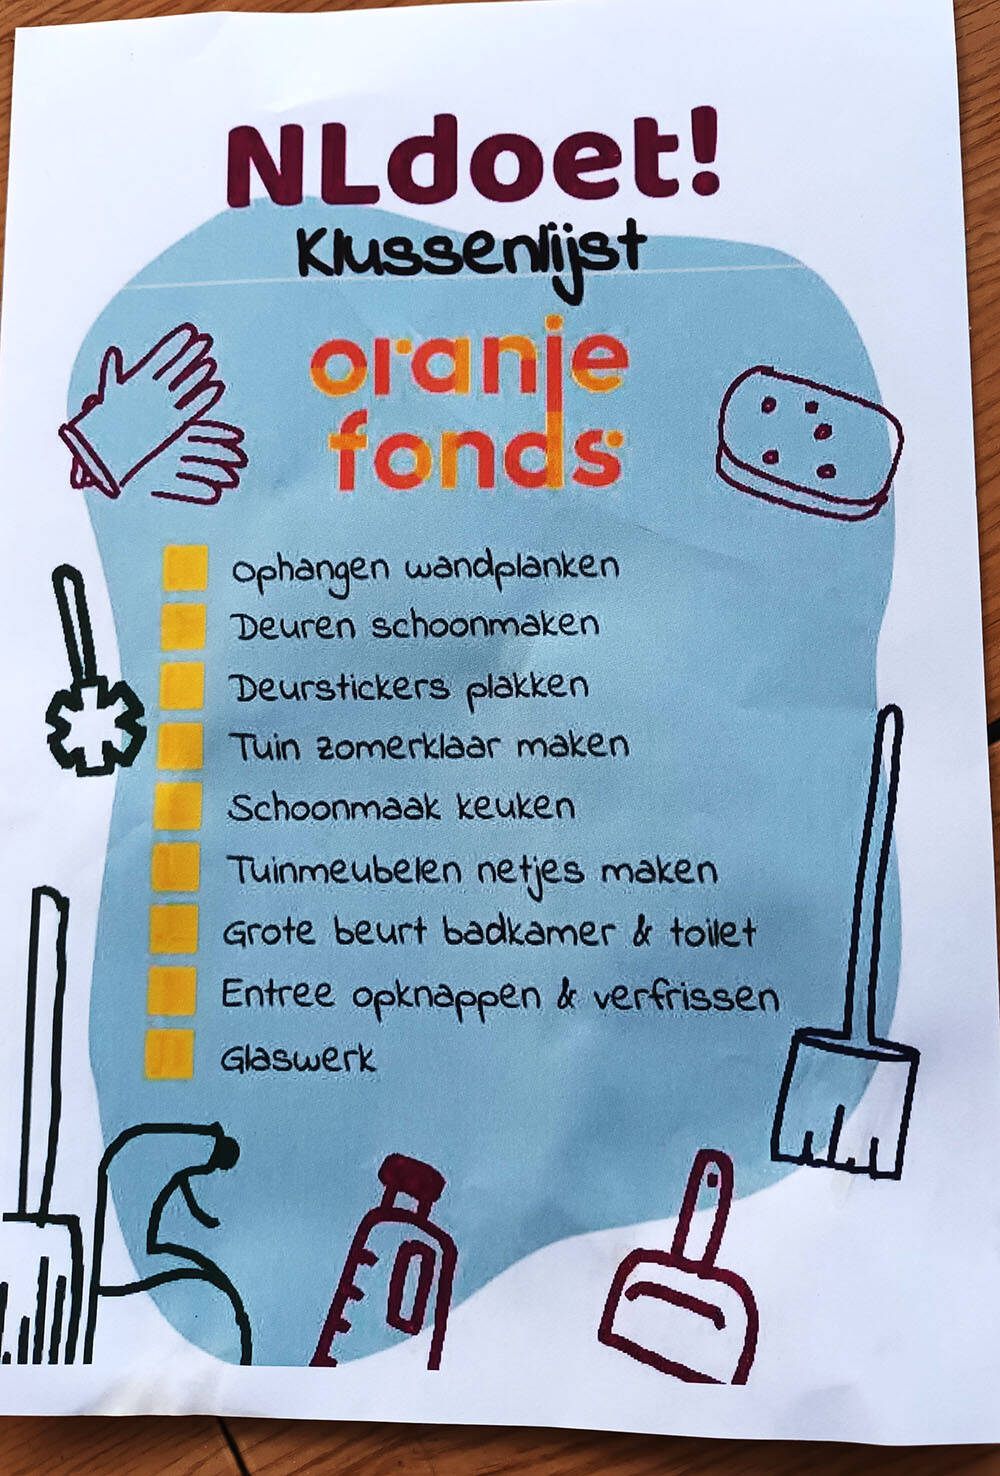 NLdoet!
Klussenlijst
oranje
fonds
Ophangen wandplanken
Deuren schoonmaken
Deurstickers plakken
Tuin zomerklaar maken
Schoonmaak keuken
Tuinmeubelen netjes maken
Grote beurt badkamer & toilet
Entree opknappen & verfrissen
Glaswerk